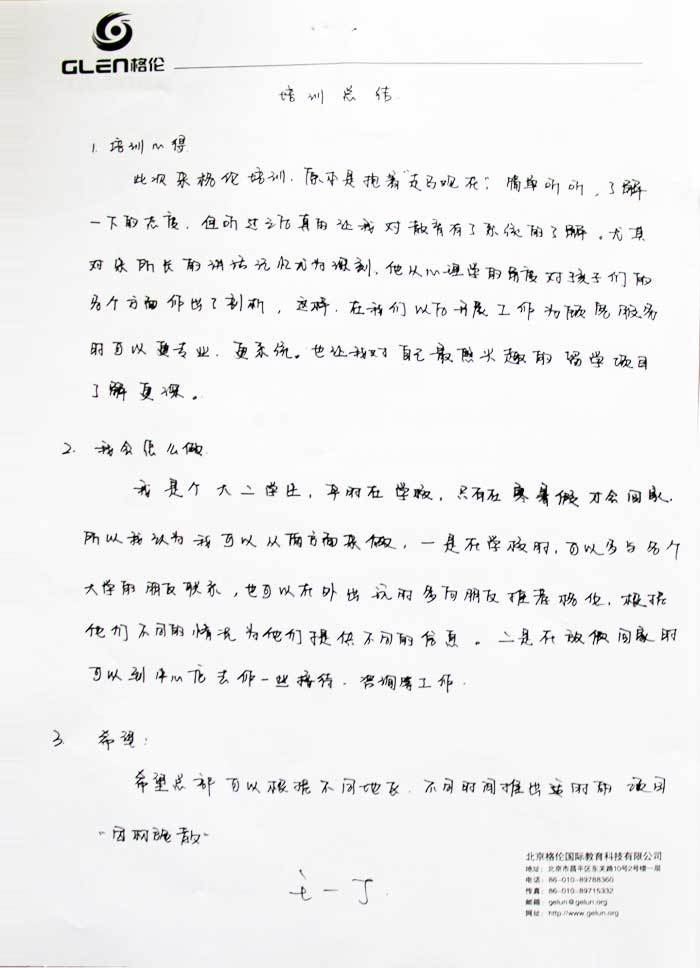 GLEN格伦
培训总结
1. 培训心得
此次来格伦培训，原本是抱着"走马观花"，简单听听，了解
一下的态度，但听过之后真的让我对教育有了系统的了解。尤其
对朱所长的讲话记忆尤为深刻，他从心理学的角度对孩子们的
多个方面作出了剖析，这样，在我们以后开展工作为顾客服务
时可以更专业、更系统。也让我对自己最感兴趣的留学项目
了解更深。
2. 我会怎么做
我是个大二学生，平时在学校，只有在寒暑假才会回家，
所以我认为我可以从两方面来做，一是在学校时，可以多与各个
大学的朋友联系，也可以在外出玩时多向朋友推荐格伦，根据
他们不同的情况为他们提供不同的信息。二是在放假回家时
可以到中心店去作一些接待、咨询等工作.
3. 希望：
希望总部可以根据不同地区、不同时间推出适时的项目
"因材施教"
王一丁
北京格伦国际教育科技有限公司
地址：北京市昌平区东关路10号2号楼一层
电话：86-010-89788360
传真：86-010-89715332
邮箱：gelun@gelun.org
网址：http://www.gelun.org